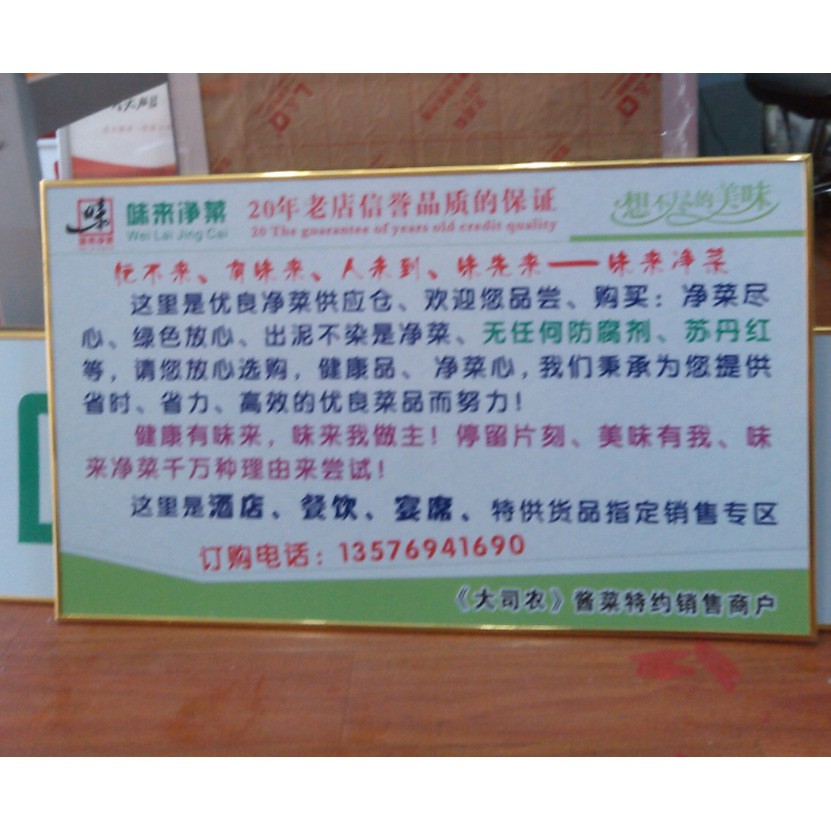 味
味来净菜
Wei Lai Jing Cai
20年老店信誉品质的保证
20 The guarantee of years old credit quality
想不尽的美味
不来、有味来、人来到、味先来——味来净菜
这里是优良净菜供应仓、欢迎您品尝、购买：净菜尽
心、绿色放心、出泥不染是净菜、无任何防腐剂、苏丹红
等，请您放心选购，健康品、净菜心，我们秉承为您提供
省时、省力、高效的优良菜品而努力！
健康有味来，味来我做主！停留片刻、美味有我、味
来净菜千万种理由来尝试！
这里是酒店、餐饮、宴席、特供货品指定销售专区
订购电话：13576941690
《大司农》酱菜特约销售商户